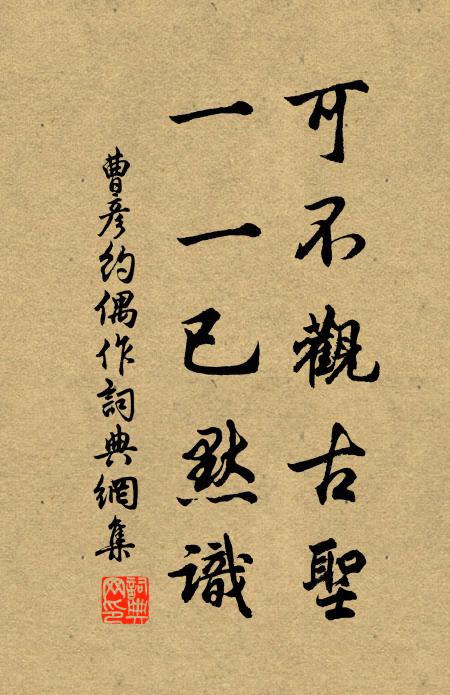 可不觀古聖
一一已默識
曹彥約偶作詞典網集
詞典网印